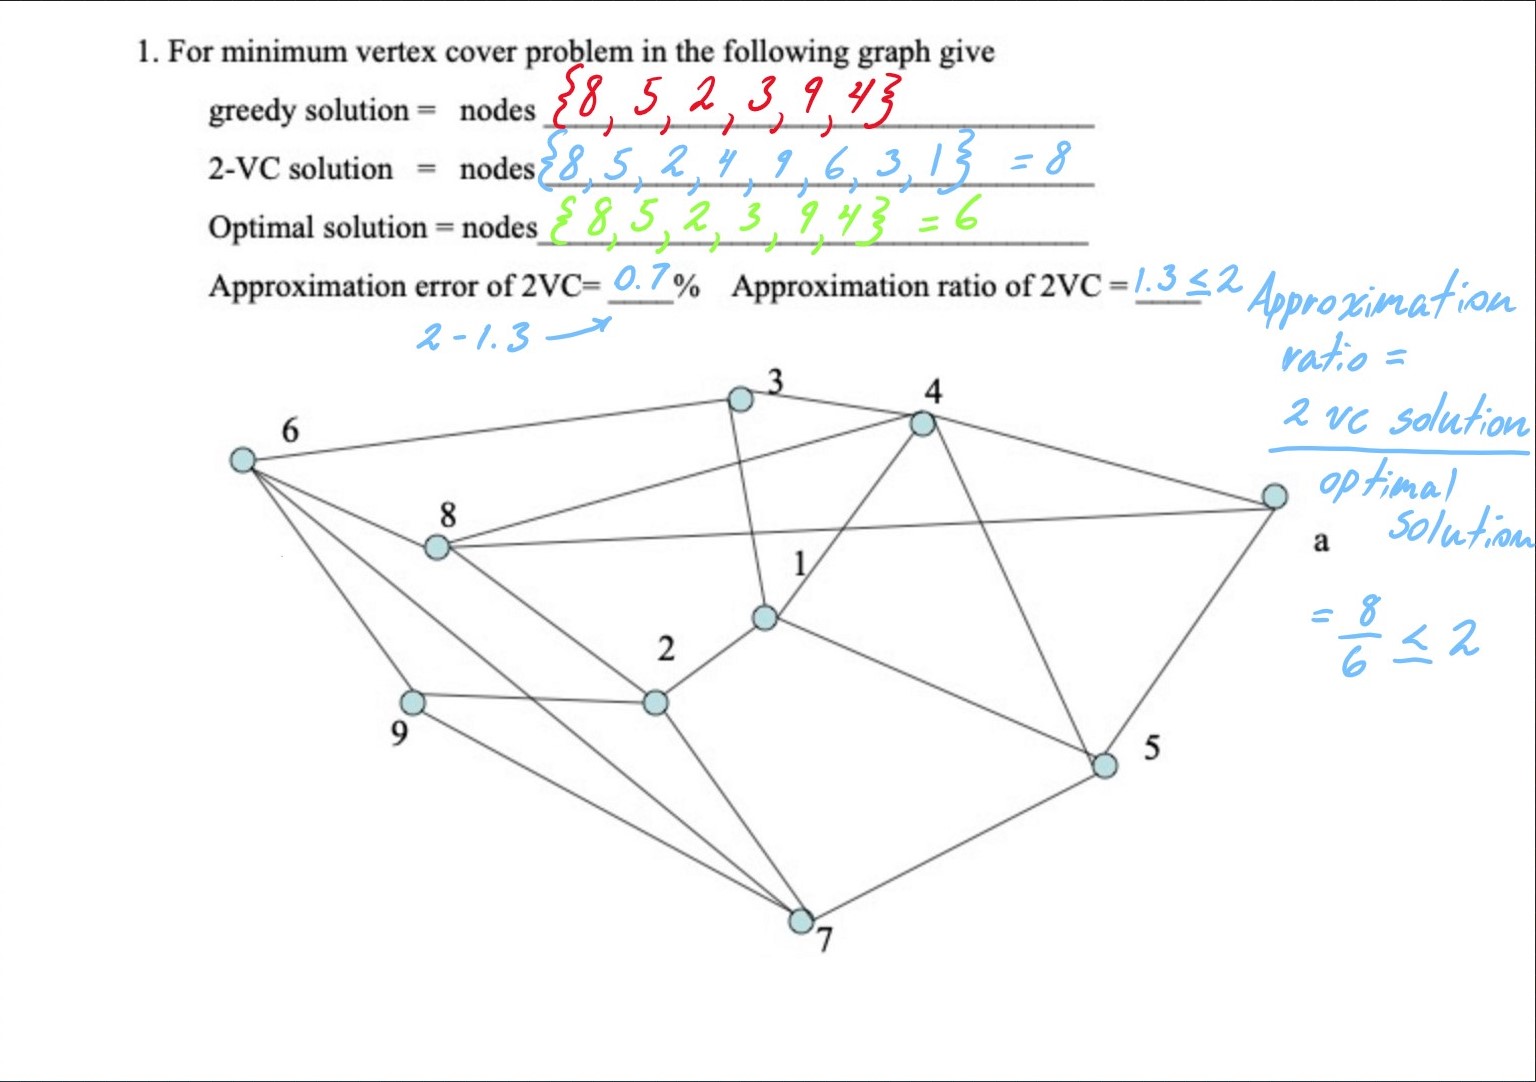 1. For minimum vertex cover problem in the following graph give
greedy solution = nodes {8, 5, 2, 3, 9, 4}
2-VC solution = nodes {8, 5, 2, 4, 9, 6, 3, 1} = 8
Optimal solution = nodes {8, 5, 2, 3, 9, 4} = 6
Approximation error of 2VC= 0.7% Approximation ratio of 2VC = 1.3 ≤ 2
2 - 1.3 →
Approximation
ratio =
2 vc solution
optimal
solution
= 8/6 ≤ 2
3
4
6
8
a
1
2
9
5
7